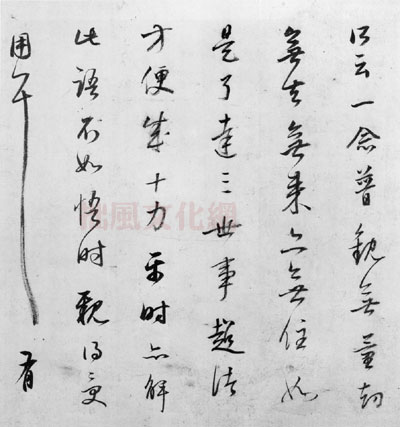 云一念普觀無量劫
無去無來亦無住如
是了達三世事超諸
方便成十力時亦解
此語不如悟時親更
用有
風文化網